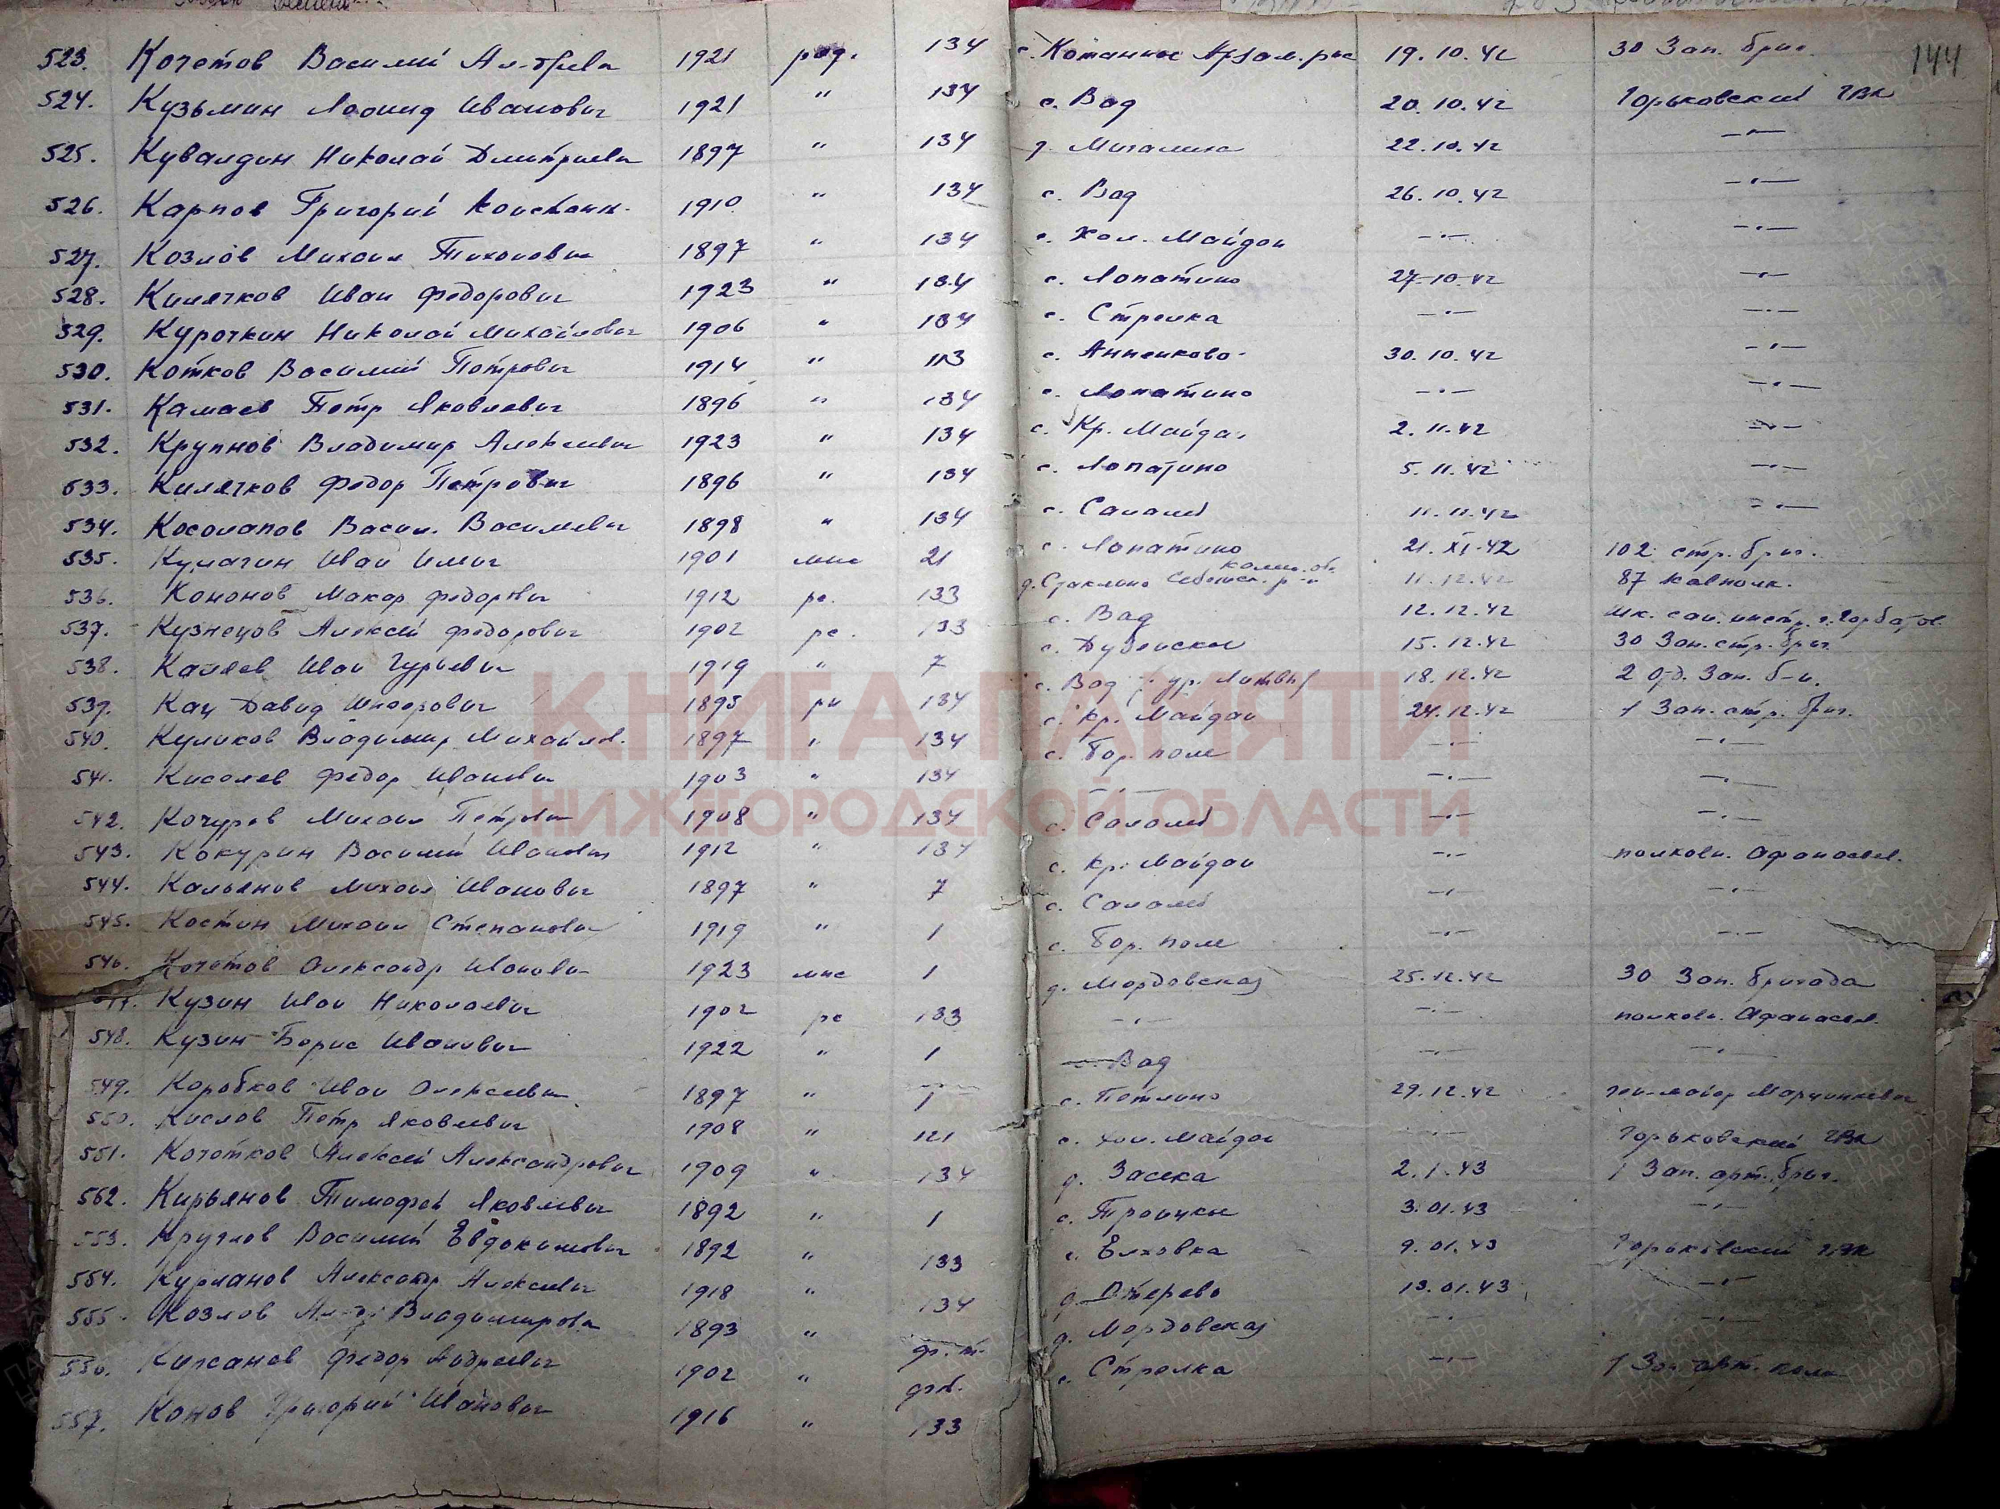 144
523. Кочетов Василий Ал-др​евич 1921 ряд. 134 Арзам. 19.10.42 30 Зап. бриг.
524. Кузьмин Леонид Иванович 1921 " 134 с. Вад 20.10.42 Горьковский ГВК
525. Кувалдин Николай Дмитриевич 1897 " 134 22.10.42 -"-
526. Карпов Григорий Констант. 1910 " 134 с. Вад 26.10.42 -"-
527. Козлов Михаил Тихонович 1897 " 134 с. Хол. Майдан -"- -"-
528. Килячков Иван Федорович 1923 " 134 с. Лопатино 27.10.42 -"-
529. Курочкин Николай Михайлович 1906 " 134 с. Стрелка -"- -"-
530. Котков Василий Петрович 1914 " 113 с. Анненково 30.10.42 -"-
531. Камаев Петр Яковлевич 1896 " 134 с. Лопатино -"- -"-
532. Крупнов Владимир Алексеевич 1923 " 134 с. Кр. Майдан 2.11.42 -"-
533. Килячков Федор Петрович 1896 " 134 с. Лопатино 5.11.42 -"-
534. Косолапов Васил. Васильевич 1898 " 134 с. Салалей 11.11.42 -"-
535. Кулагин Иван Ильич 1901 21 с. Лопатино 21.XI.42 102 стр. бриг.
536. Кононов Макар Федорович 1912 133 11.12.42 87 кавполк.
537. Кузнецов Алексей Федорович 1902 133 с. Вад 12.12.42
538. Каляев Иван Гурьевич 1919 " 7 с. Дубенское 15.12.42 30 Зап. стр. бриг.
539. Кац Давид 1895 134 с. Вад 18.12.42 2 отд. Зап. б-н.
540. Куликов Владимир Михайлов. 1897 " 134 с. Кр. Майдан 24.12.42 1 Зап. стр. бриг.
541. Киселев Федор Иванович 1903 " 134 с. Бор. поле -"- -"-
542. Кочуров Михаил Петрович 1908 " 134 -"- -"- -"-
543. Кокурин Василий Иванович 1912 " 134 с. Салалей -"- -"-
544. Кальянов Михаил Иванович 1897 " 7 с. Кр. Майдан -"- полковн. Афанасьев.
545. Костин Михаил Степанович 1919 " 1 с. Салалей -"- -"-
546. Кочетов Александр Иванович 1923 1 с. Бор. поле -"- -"-
547. Кузин Иван Николаевич 1902 133 д. Мордовская 25.12.42 30 Зап. бригада
548. Кузин Борис Иванович 1922 " 1 -"- -"- полковн. Афанасьев.
549. Коробков Иван Алексеевич 1897 " 1 Вад -"- -"-
550. Кислов Петр Яковлевич 1908 " 121 с. Петлино 29.12.42 ген-майор Марцинкевич
551. Кочетков Алексей Александрович 1909 " 134 с. Хол. Майдан -"- Горьковский ГВК
552. Кирьянов Тимофей Яковлевич 1892 " 1 д. Засека 2.1.43 1 Зап. арт. бриг.
553. Круглов Василий Евдокимович 1892 " 133 с. Троицкое 3.01.43 -"-
554. Курланов Александр Алексеевич 1918 " 134 с. Елховка 9.01.43 Горьковский ГВК
555. Козлов Ал-др Владимирович 1893 " д. Отерево 13.01.43 -"-
556. Кирсанов Федор Андреевич 1902 " д. Мордовская -"- -"-
557. Конов Григорий Иванович 1916 " 133 с. Стрелка -"- 1 Зап. арт. полк
КНИГА ПАМЯТИ
НИЖЕГОРОДСКОЙ ОБЛАСТИ
ПАМЯТЬ НАРОДА